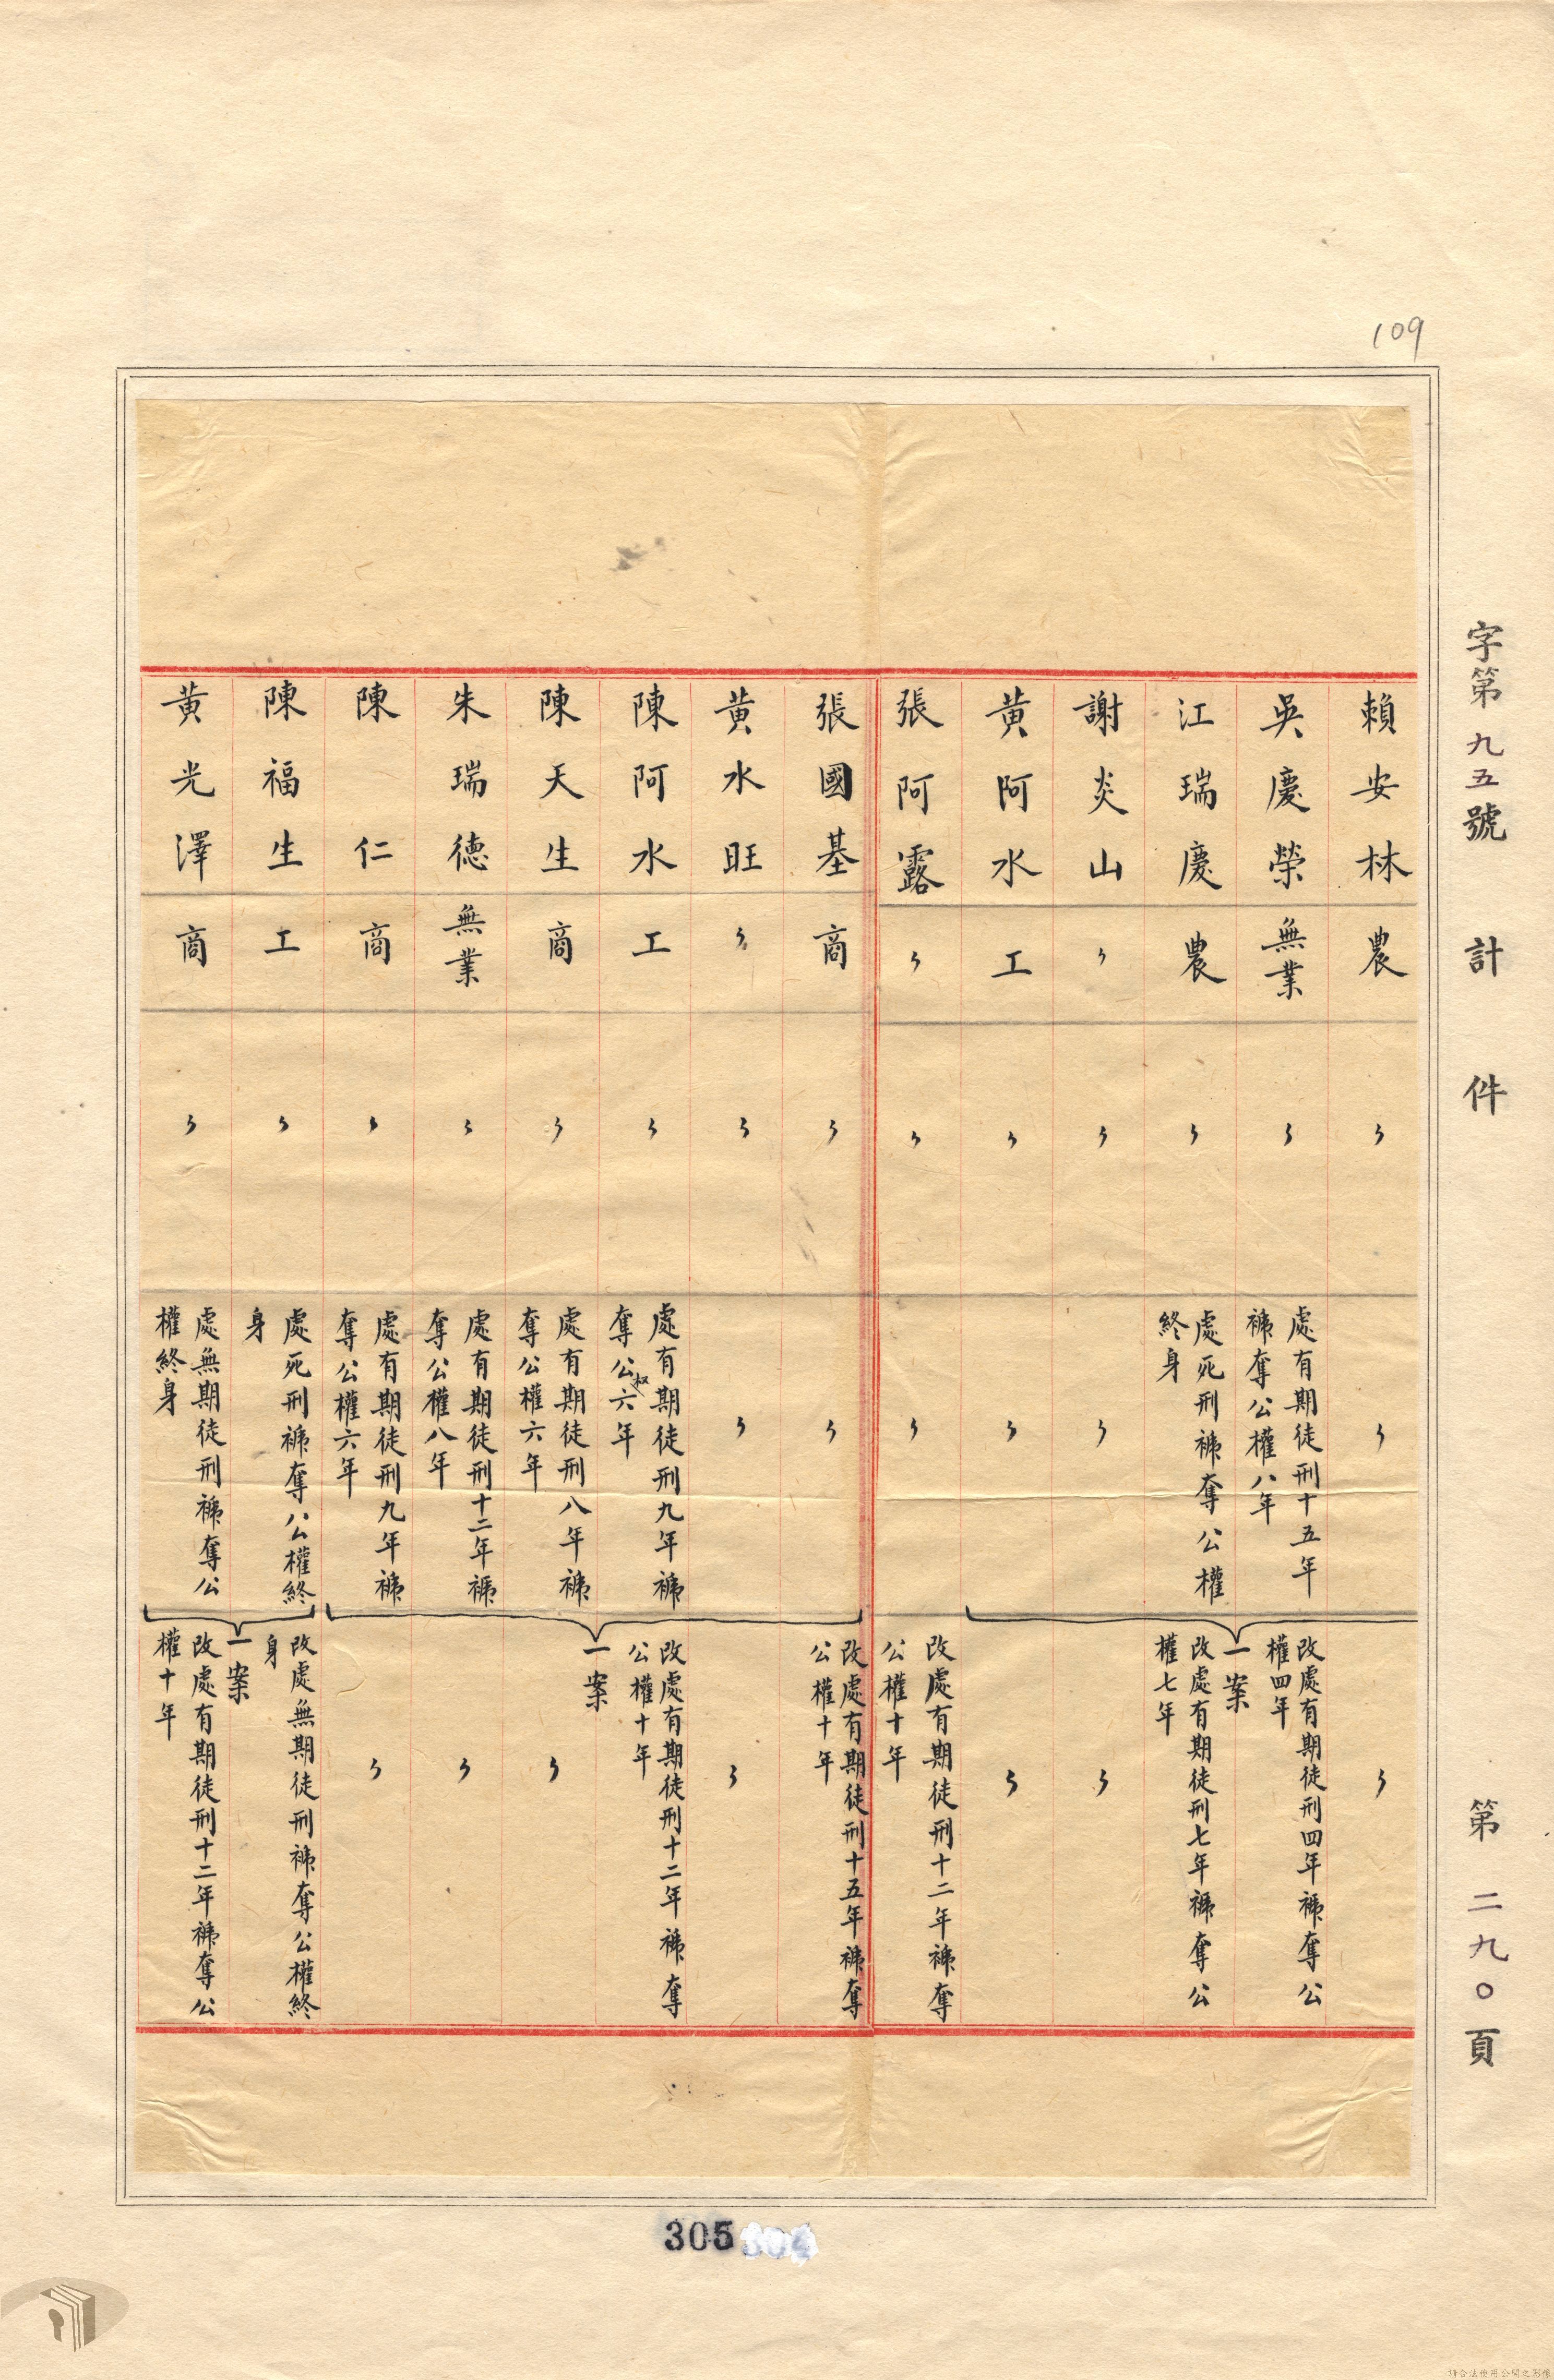 109
字第九五號 計 件 第二九〇頁
賴安林 農 〃 〃 〃
吳慶榮 無業 〃 處有期徒刑十五年
褫奪公權八年
改處有期徒刑四年褫奪公
權四年
一案
江瑞慶 農 〃 處死刑褫奪公權
終身
改處有期徒刑七年褫奪公
權七年
謝炎山 〃 〃 〃 〃
黃阿水 工 〃 〃 〃
張阿露 〃 〃 〃 改處有期徒刑十二年褫奪
公權十年
張國基 商 〃 〃 改處有期徒刑十五年褫奪
公權十年
黃水旺 〃 〃 〃 〃
陳阿水 工 〃 處有期徒刑九年褫
奪公權六年
改處有期徒刑十二年褫奪
公權十年
一案
陳天生 商 〃 處有期徒刑八年褫
奪公權六年
〃
朱瑞德 無業 〃 處有期徒刑十二年褫
奪公權八年
〃
陳仁 商 〃 處有期徒刑九年褫
奪公權六年
〃
陳福生 工 〃 處死刑褫奪公權終
身
改處無期徒刑褫奪公權終
身
一案
黃光澤 商 〃 處無期徒刑褫奪公
權終身
改處有期徒刑十二年褫奪公
權十年
305
請合法使用公開之影像